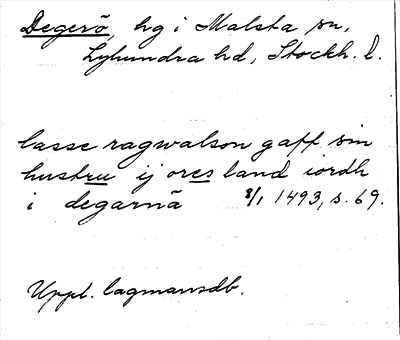 Degerö, hg i Malsta sn,
Lyhundra hd, Stockh. l.
lasse ragwalson gaff sin
hustru ij ores land iordh
i degarnā 8/1 1493, s. 69.
Uppl. lagmansdb.